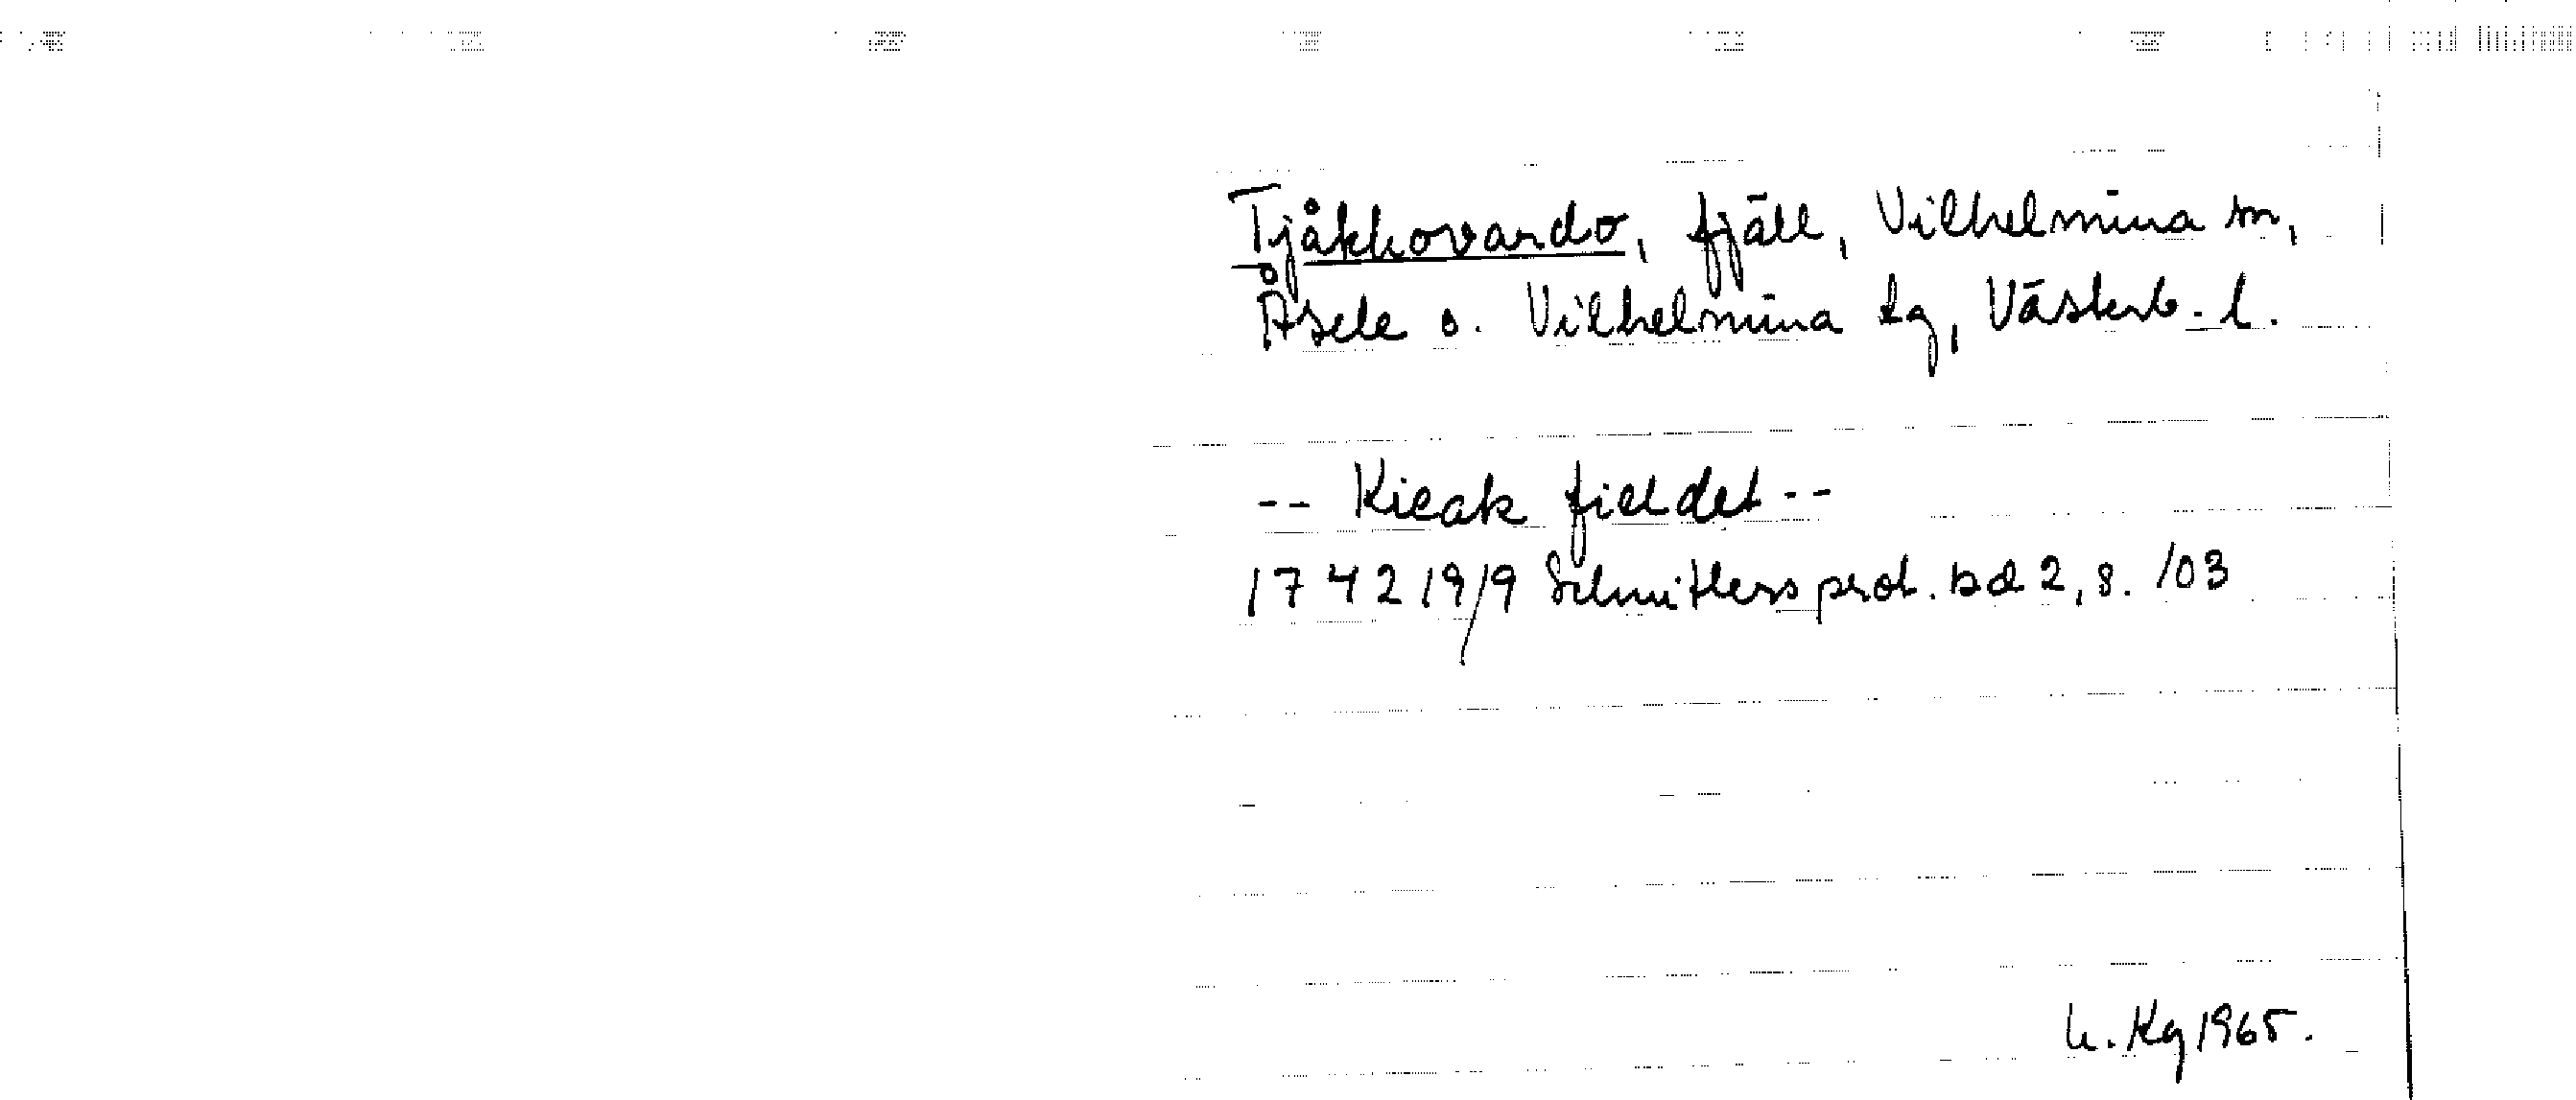 Tjåkkovardo, fjäll, Vilhelmina sn,
Åsele o. Vilhelmina tg, Västerb. l.
-- Kieak fieldet --
1742 19/9 Schnitlers prot. bd 2, s. 103
U. Kg 1965.